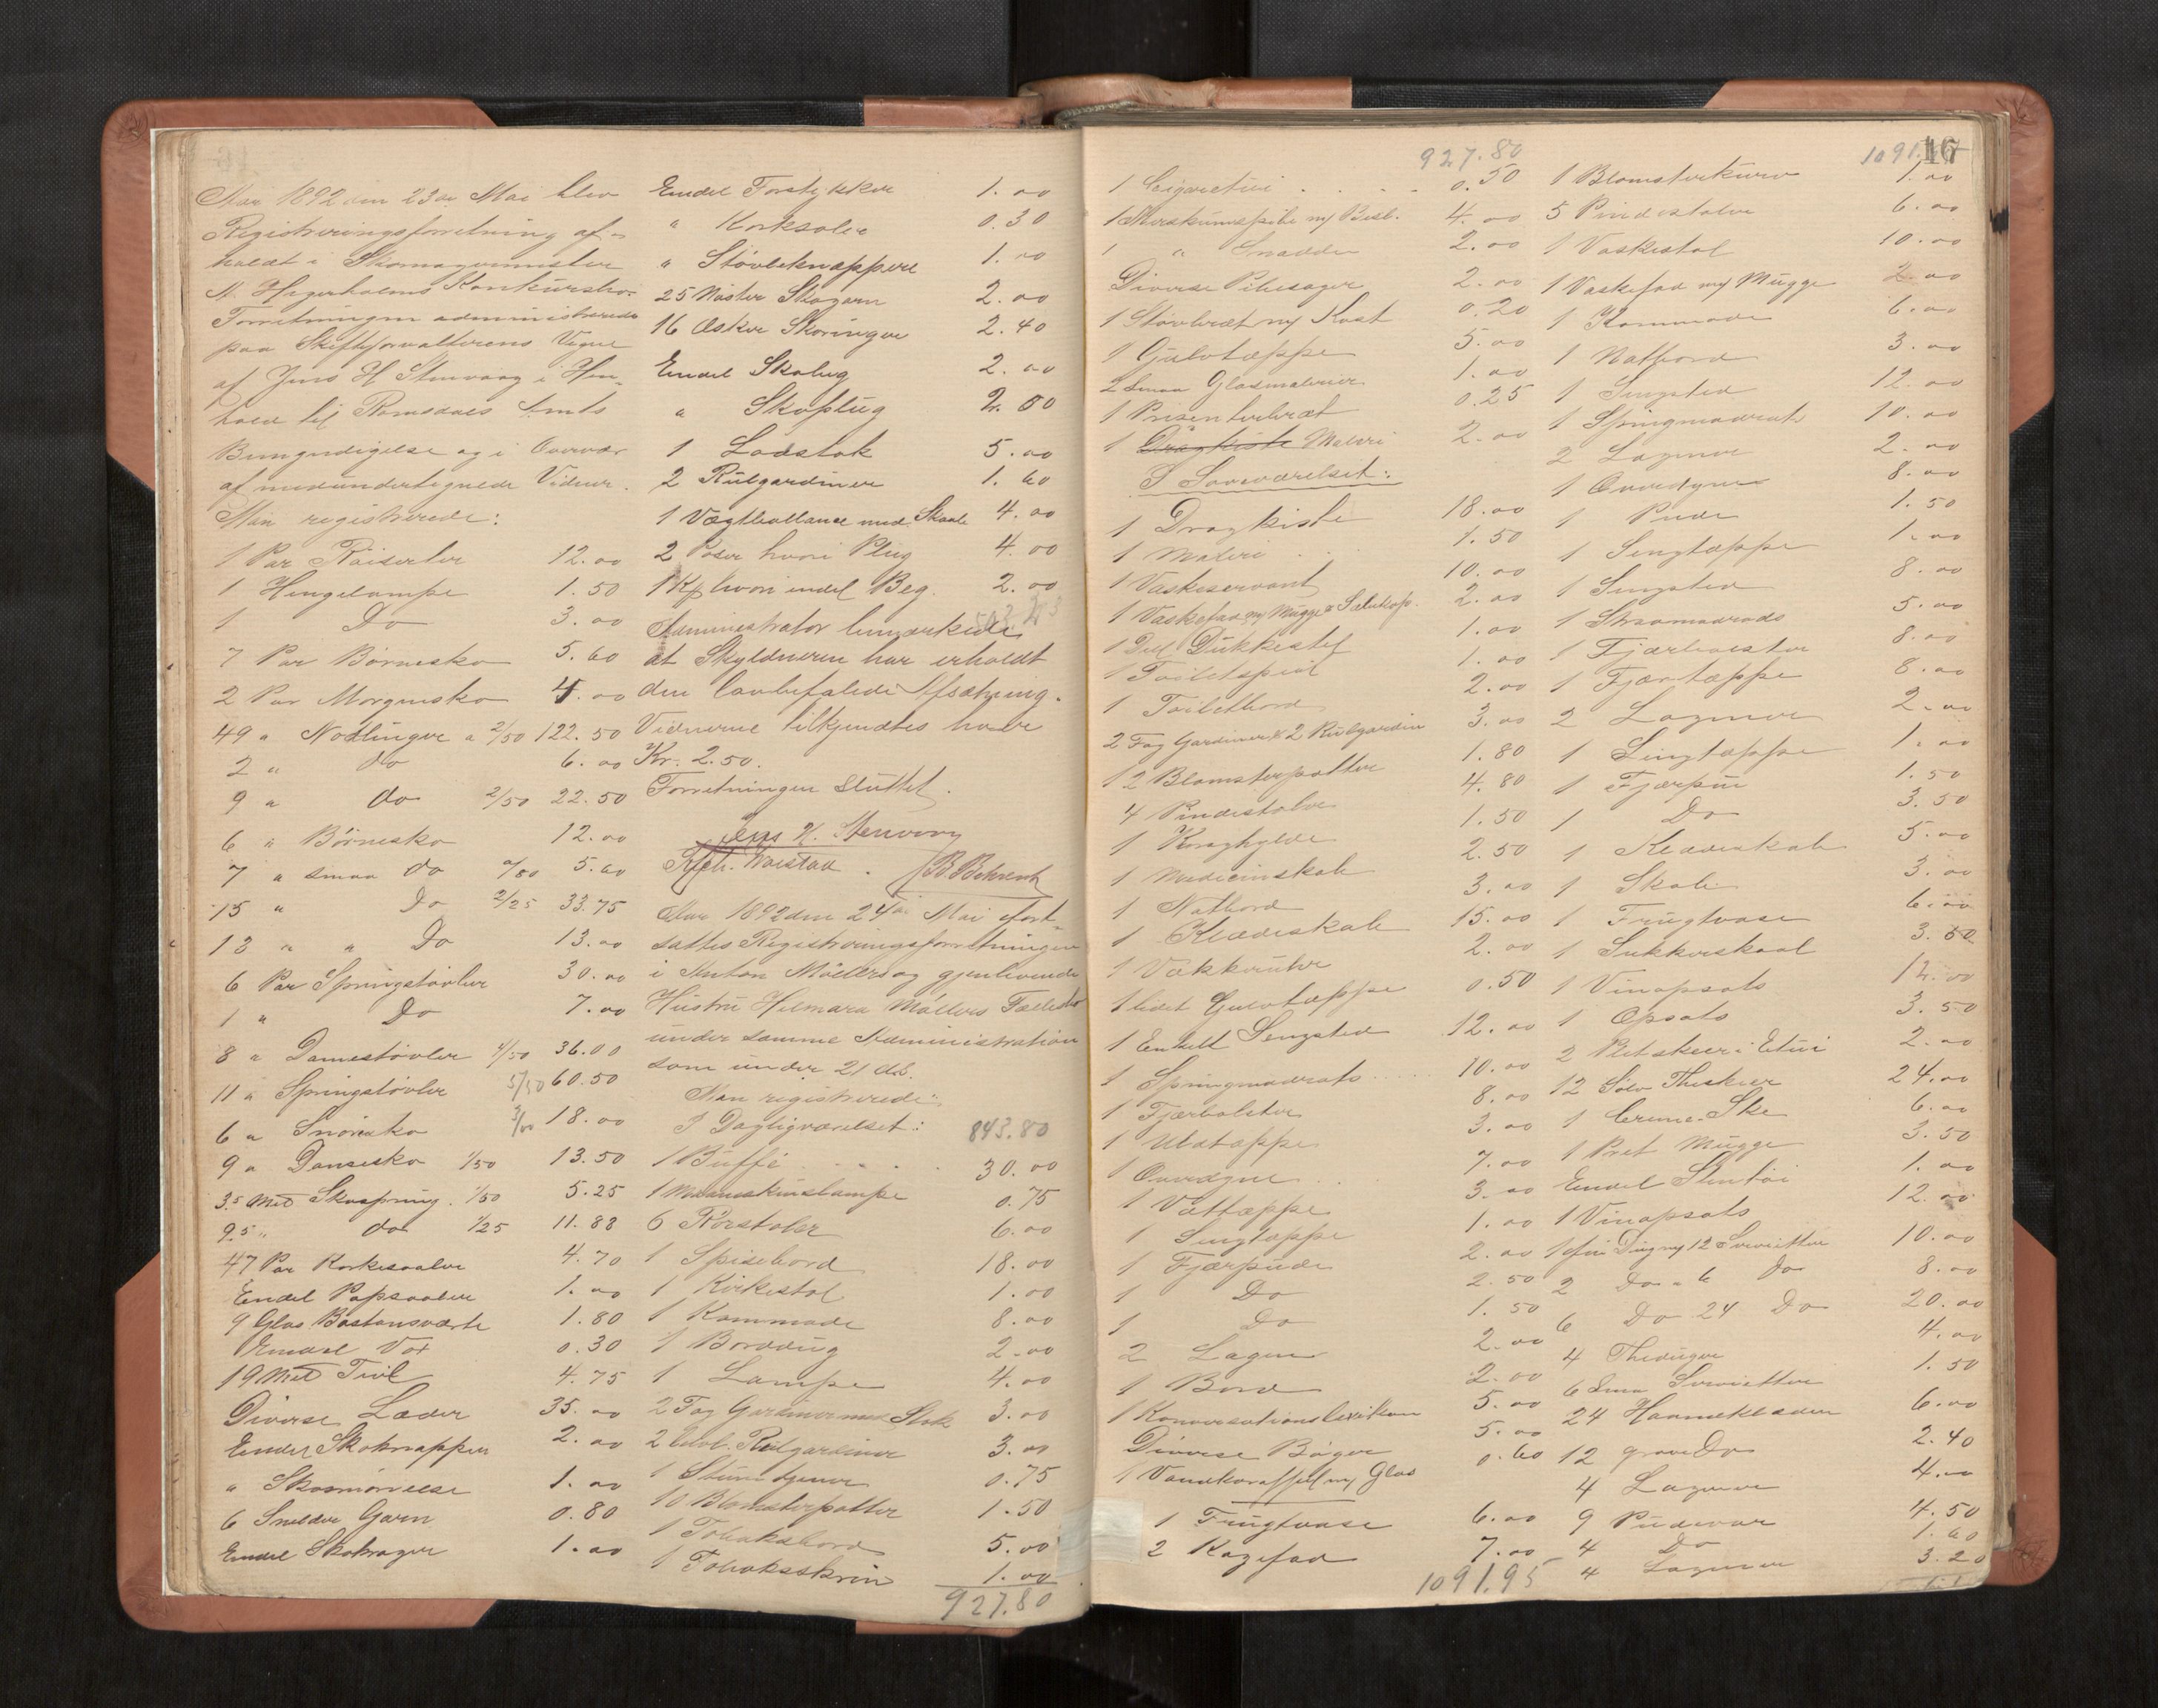 Aar 1892 den 23de Mai blev
Registreringsforretning af-
holdt i Skomagermester
A. Hegerholms Konkursbo.
Forretningen administreredes
paa Skifteforvalterens Vegne
af Jens H Stenvaag i Hen-
hold til Romsdals Amts
Bemyndigelse og i Overvær
af medundertegnede Vidner.
Man registrerede:
1 Par 12.00
1 Hengelampe 1.50
1 Do 3.00
7 Par Børnesko 5.60
2 Par Morgensko 4.00
49 " a 2/50 122.50
2 " do 6.00
9 " do 2/50 22.50
6 " Børnesko 12.00
7 " smaa do "/80 5.60
15 " Do 2/25 33.75
13 " " Do 13.00
6 Par Springstøvler 30.00
1 " Do 7.00
8 " Damestøvler 4/50 36.00
11 " Springstøvler 5/50 60.50
6 " Snøresko 3/00 18.00
9 " Dansesko 1/50 13.50
3.5 Met Skospring. 1/50 5.25
9.5 " do 1/25 11.88
47 Par Korksaaler 4.70
Endel Papsaaler 1.00
9 Glas 1.80
Endel Vox 0.30
19 Met 4.75
Diverse Læder 35.00
Endel Skoknapper 2.00
" Skosmørelse 1.00
6 Sneller Garn 0.80
Endel Skokrager 1.00
Endel Forstykker 1.00
" Korksoler 0.30
" Støvleknappere 1.00
25 Nøster Skogarn 2.00
16 Æsker Skoringer 2.40
Endel Skolug 2.00
" Skoplug 2.00
1 Ladstok 5.00
2 Rulgardiner 1.60
1 Vægtballance med Skaale 4.00
2 Poser hvori Plug 4.00
1 Kp hvori endel Beg. 2.00
Administrator bemærkede
at Skyldneren har erholdt
den lovbefalede Afsætning.
Vidnerne tilkjendtes hver
Kr. 2.50.
Forretningen sluttet.
Jens H. Stenvaag
B. Behrent
Aar 1892 den 24de Mai fort-
sattes Registreringsforretningen
i Anton Møllers og gjenlevende
Hustru Helmara Møllers Fællesbo
under samme Administration
som under 21 ds.
Man registrerede:
I Dagligværelset: 843.80
1 Buffé 30.00
1 Maaneskinslampe 0.75
6 Rørstoler 6.00
1 Spisebord 18.00
1 Kirkestol 1.00
1 Kommode 8.00
1 Borddug 2.00
1 Lampe 4.00
2 Fag Gardiner med Stok 3.00
2 Rulgardiner 3.00
1 Stummtjener 0.75
10 Blomsterpotter 1.50
1 Tobaksbord 5.00
1 Tobaksskrin 1.00
927.80
927.80
1 Cigaretui 0.50
1 Merskumspibe m/ Besl. 4.00
1 " Snadde 2.00
Diverse Pibesager 2.00
1 Støvbræt m/ Kost 0.20
1 Gulvtæppe 5.00
2 Smaa Glasmalerier 1.00
1 Presenterbræt 0.25
1 Dragkiste Maleri 2.00
I Soveværelset:
1 Dragkiste 18.00
1 Maleri 1.50
1 Vaskeservant 10.00
1 Vaskefad m/ Mugge & Sæbekop. 2.00
1 Del Dukkestel 1.00
1 Toiletspeil 1.00
1 Toiletbord 2.00
2 Fag Gardiner & 2 Rulgardin 3.00
12 Blomsterpotter 1.80
4 Pindestoler 4.80
1 Kroghylde 1.50
1 Medicinskab 2.50
1 Natbord 3.00
1 Klædeskab 15.00
1 Vækkeruhr 2.00
1 lidet Gulvtæppe 0.50
1 Enkelt Sengsted 12.00
1 Springmadrats 10.00
1 Fjærbolster 8.00
1 Uldtæppe 3.00
1 Overdyne 7.00
1 Vattæppe 3.00
1 Sengtæppe 1.00
1 Fjærpude 2.00
1 Do 2.50
1 Do 1.50
2 Lagen 2.00
1 Bord 2.00
1 Konversationslexikon 5.00
Diverse Bøger 5.00
1 Vandkaraffel m/ Glas 0.60
1 Frugtvase 6.00
2 Kagefad 7.00
1091.95
1091.
16
1 Blomsterkurv 1.00
5 Pindestoler 6.00
1 Vaskestol 10.00
1 Vaskefad m/ Mugge 2.00
1 Kommode 6.00
1 Natbord 3.00
1 Sengsted 12.00
1 Springmadrats 10.00
2 Lagener 2.00
1 Overdyne 8.00
1 Pude 1.50
1 Sengtæppe 1.00
1 Sengsted 8.00
1 Straamadrads 5.00
1 Fjærbolster 8.00
1 Fjærtæppe 8.00
2 Lagener 2.00
1 Sengtæppe 1.00
1 Fjærpu 1.50
1 Do 3.50
1 Klædeskab 5.00
1 Skab 3.00
1 Frugtvase 6.00
1 Sukkerskaal 3.50
1 Vinopsats 12.00
1 Opsats 3.50
2 Pletskeer i Etui 2.00
12 Sølv Theskeer 24.00
1 Creme-Ske 6.00
1 Plet Mugge 3.50
Endel Stentøi 1.00
1 Vinopsats 12.00
1 fin Dug m/ 12 Servietter 10.00
2 Do " 6 do 8.00
6 Do 24 Do 20.00
4 Theduger 4.00
6 Smaa Servietter 1.50
24 Haandklæder 6.00
12 grove Do 2.40
4 Lagener 4.00
9 Pudevar 4.50
4 Do 1.60
4 Lagener 3.20